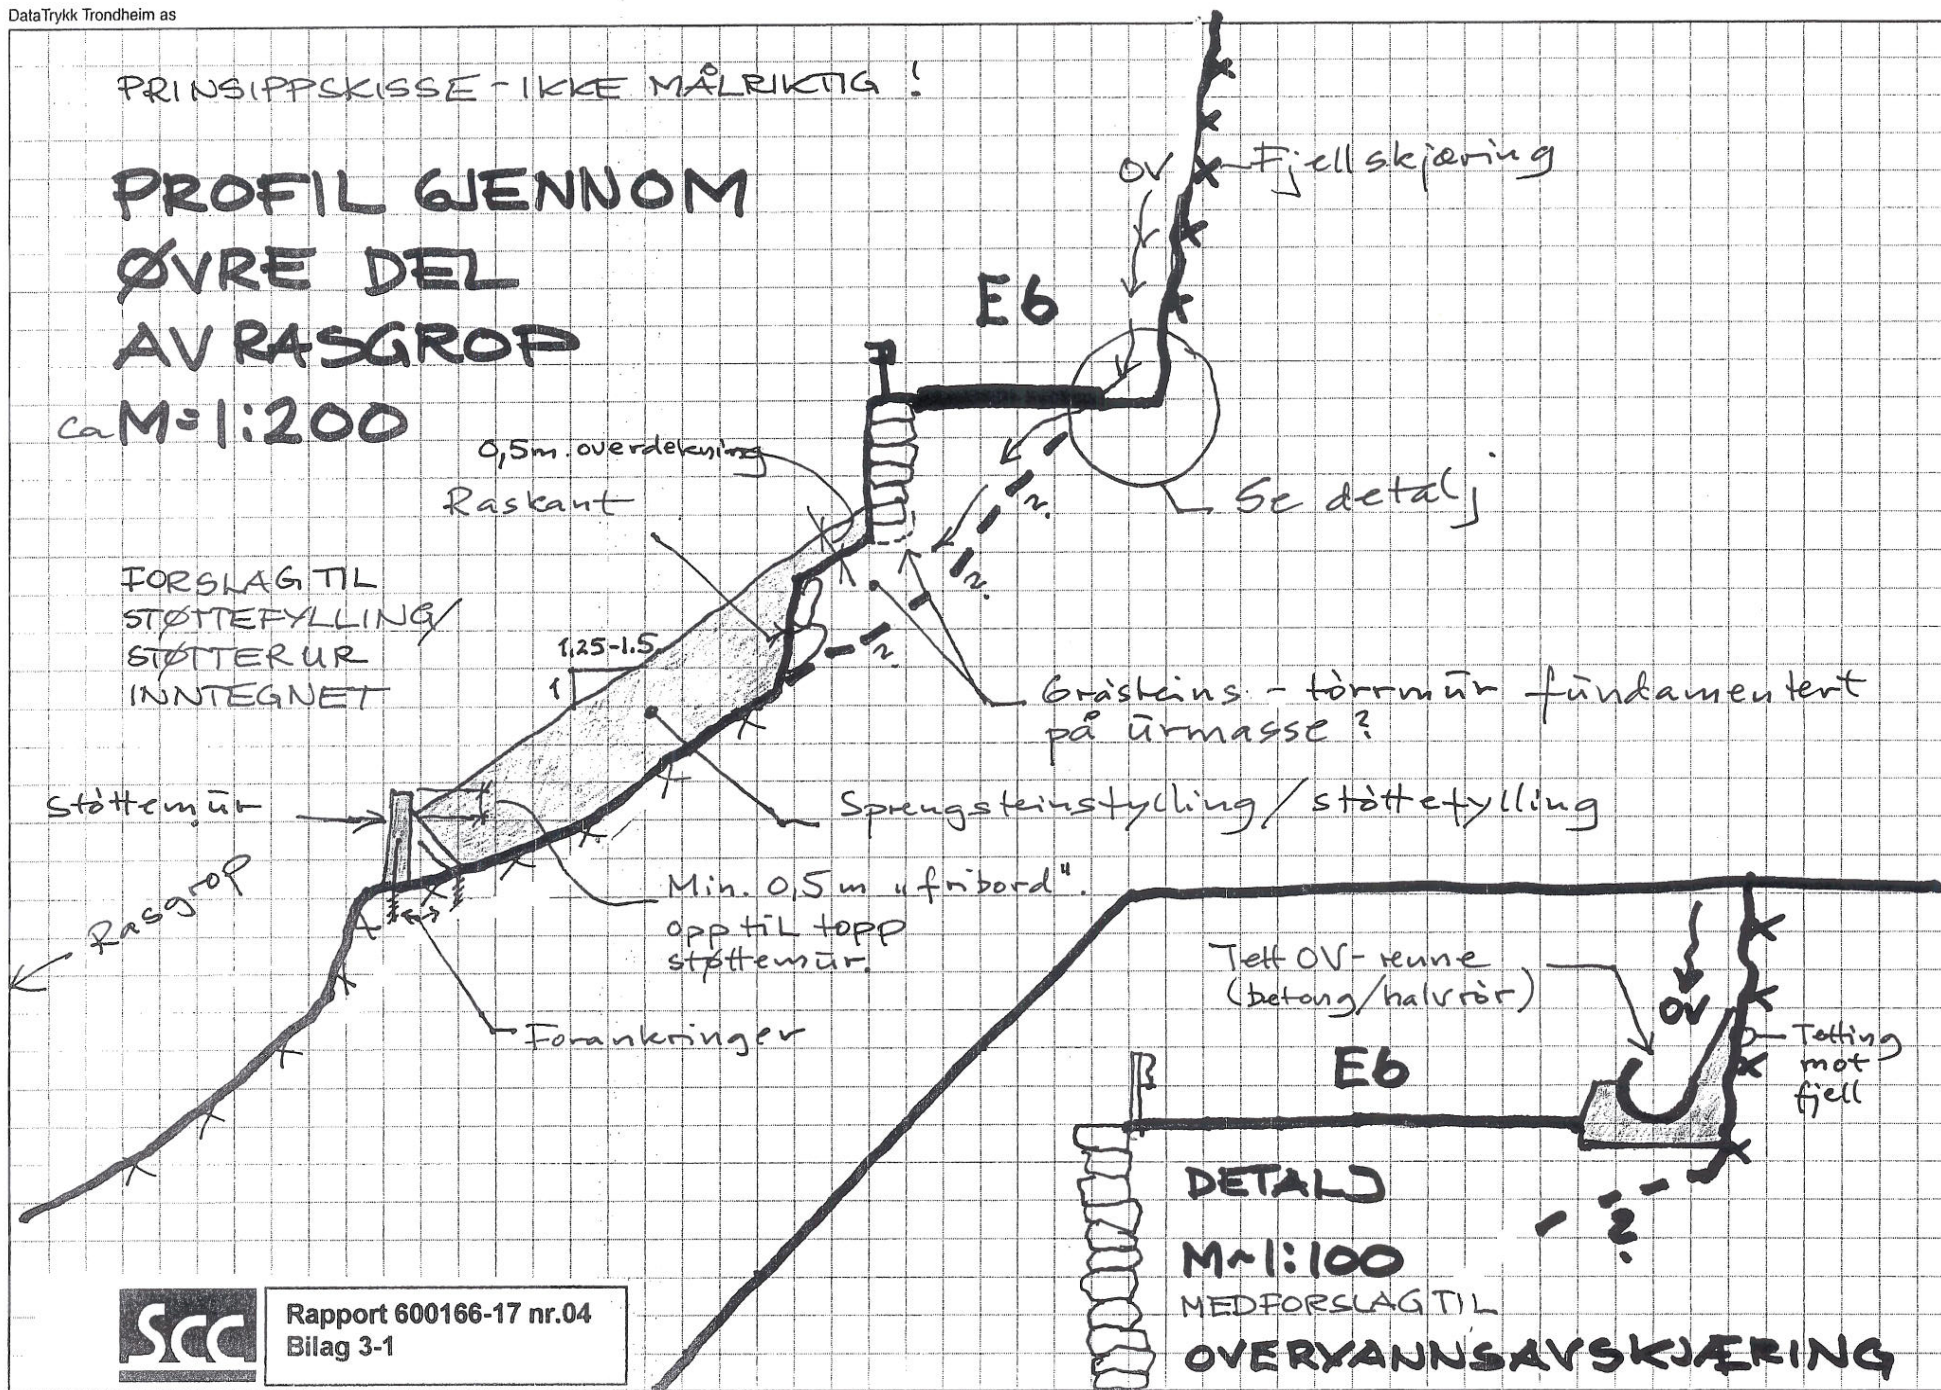 DataTrykk Trondheim as
PRINSIPPSKISSE - IKKE MÅLRIKTIG !
PROFIL GJENNOM
ØVRE DEL
AV RASGROP
ca M=1:200
OV
Fjellskjæring
E6
0,5m. overdekning
Raskant
Se detalj
?
?
?
FORSLAG TIL
STØTTEFYLLING/
STØTTERUR
INNTEGNET
1,25-1.5
1
Gråsteins - tørrmur fundamentert
på urmasse ?
Støttemur
Sprengsteinsfylling / støttefylling
Rasgrop
Min. 0,5 m "fribord".
opp til topp
støttemur.
Forankringer
Tett OV-renne
(betong/halvrør)
OV
Tetting
mot
fjell
E6
?
DETALJ
M~1:100
MED FORSLAG TIL
OVERVANNSAVSKJÆRING
SCC
Rapport 600166-17 nr.04
Bilag 3-1